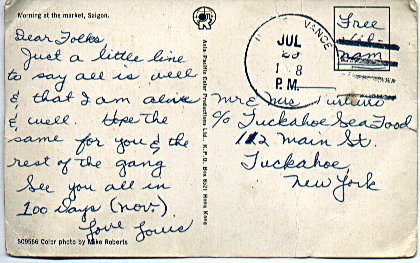 Morning at the market, Saigon.
Dear Folks
Just a little line
to say all is well
& that I am alive
& well. Hope the
same for you & the
rest of the gang
See you all in
100 days (Nov.).
Love Louis
509556 Color photo by Mike Roberts
Asia Pacific Color Productions Ltd. K.P.O. Box 6521 Hong Kong
VANCE
JUL
18
P.M.
Free
Mr & Mrs
c/o Tuckahoe Sea Food
112 Main St.
Tuckahoe,
New York